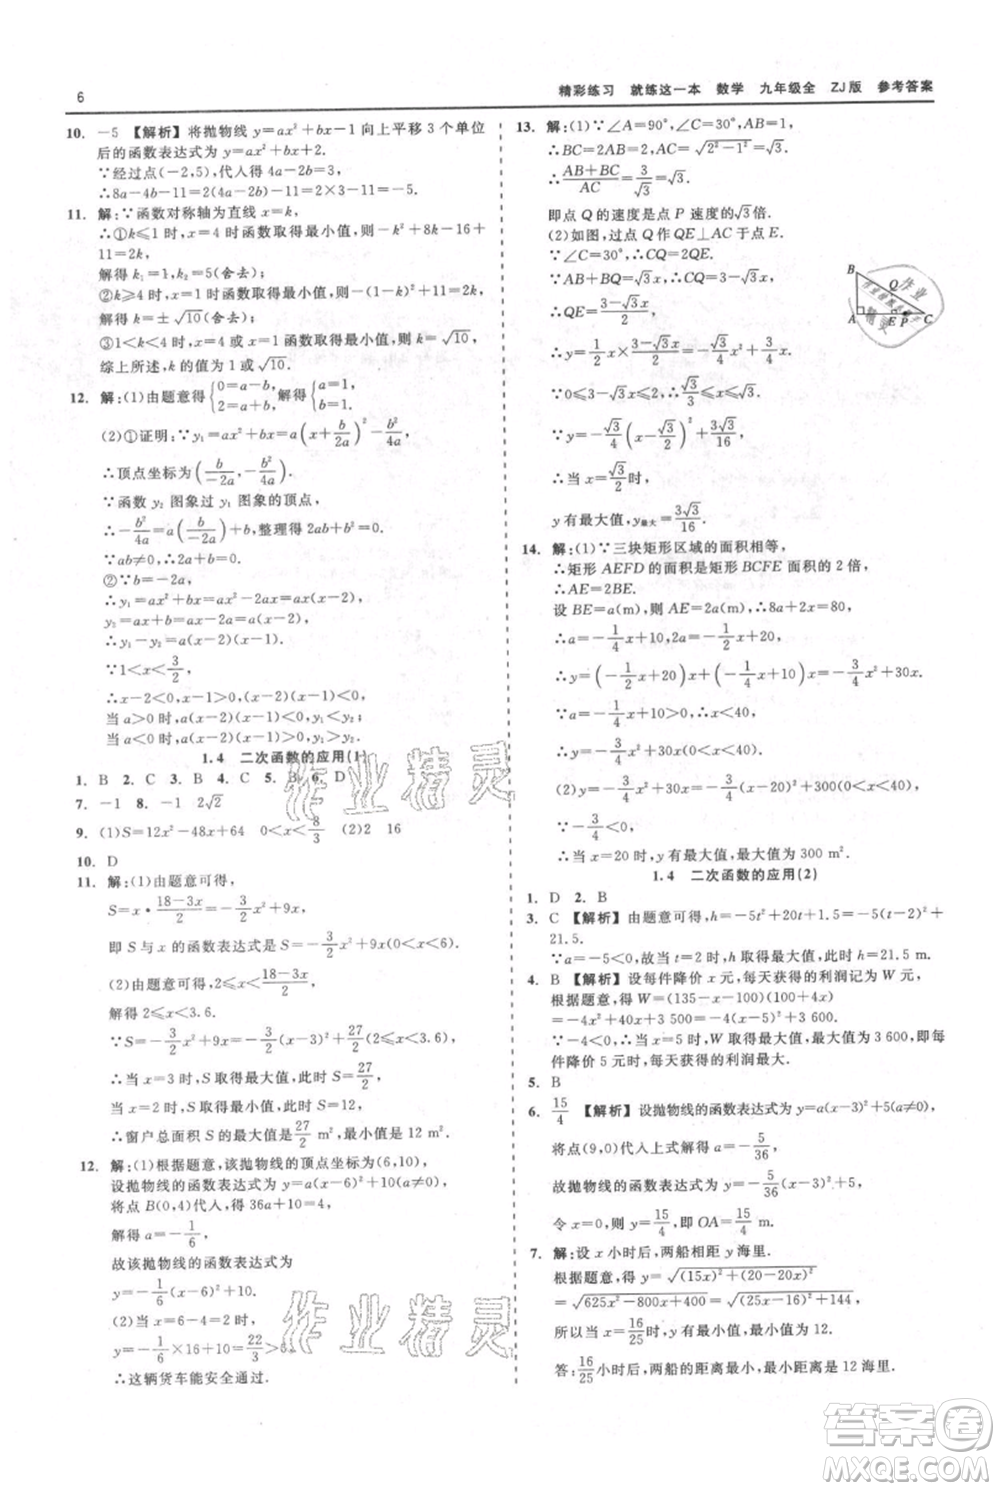 6
精彩练习 就练这一本 数学 九年级全 ZJ版 参考答案
10. -5 【解析】将抛物线 y=ax²+bx-1 向上平移 3 个单位
后的函数表达式为 y=ax²+bx+2.
∵经过点(-2,5),代人得 4a-2b=3.
∴8a-4b-11=2(4a-2b)-11=2×3-11=-5.
11. 解:∵函数对称轴为直线 x=k,
∴①k≤1 时,x=1 时函数取得最小值,故-k²-6k+
11=2k,
解得 k₁=k₂=5(舍去);
②k≥4 时,x=4 时函数取得最小值,
解得 k=±√10(舍去);
③1<k<4 时,x=k 时函数取得最小值,解得 k=√10.
综上所述,k 的值为 1 或√10.
12. 解:(1)由题意得{0=a-b, 2=a+b,解得{a=1, b=1.
(2)①证明:∵y₁=ax²+bx=a(x+b/2a)²-b²/4a,
∴顶点坐标为(b/-2a,-b²/4a).
∵函数 y₂ 图象过 y₁ 图象的顶点,
∴-b²/4a=a(b/-2a)+b,整理得 2ab+b²=0.
∵ab≠0,∴2a+b=0.
②∵b=-2a,
∴y₁=ax²-2ax=ax(x-2),
y₂=ax-2a=a(x-2),
∴y₁-y₂=a(x-2)(x-1).
∵1<x<3/2,
∴x-2<0,x-1>0,(x-2)(x-1)<0.
当 a>0 时,a(x-2)(x-1)<0,y₁<y₂.
当 a<0 时,a(x-2)(x-1)>0,y₁>y₂.
1.4 二次函数的应用(1)
1. B 2. C 3. B 4. C 5. B 6. D
7. -1 8. -1 2√2
9. (1)S=12x²-48x+64 0<x<8/3 (2)2 16
10. D
11. 解:(1)由题意可得,
S=x·(18-3x)/2=-3/2x²+9x,
即 S 与 x 的函数表达式是 S=-3/2x²+9x(0<x<6).
(2)由题意可得,2≤x≤(18-3x)/2,
解得 2≤x≤3.6.
∵S=-3/2x²+9x=-3/2(x-3)²+27/2,
∴当 x=3 时,S 取得最大值,此时 S=27/2,
当 x=2 时,S 取得最小值,此时 S=12,
∴窗户总面积 S 的最大值是27/2 m²,最小值是 12 m².
12. 解:(1)根据题意,该抛物线的顶点坐标为(6,10),
设抛物线的函数表达式为 y=a(x-6)²+10,
将点 B(0,4)代人,得 36a+10=4,
解得 a=-1/6,
故该抛物线的函数表达式为
y=-1/6(x-6)²+10.
(2)当 x=6-4=2 时,
y=-1/6×16+10=22/3>
∴这辆货车能安全通过.
13. 解:(1)∵∠A=90°,∠C=30°,AB=1,
∴BC=2AB=2,∴AC=√(2²-1²)=√3,
∴(AB+BC)/AC=3/√3=√3,
即点 Q 的速度是点 P 速度的√3倍.
(2)如图,过点 Q 作 QE⊥AC 于点 E.
∵∠C=30°,∴CQ=2QE.
∵AB+BQ=√3x,∴CQ=3-√3x,
∴QE=(3-√3x)/2,
∴y=1/2x×(3-√3x)/2=-√3/4x²+3/4x.
B Q A E P C
∵-√3/4<0,∴当 x=√3/2时,
y 有最大值,y最大=3√3/16.
14. 解:(1)∵三块矩形区域的面积相等,
∴矩形 AEFD 的面积是矩形 BCFE 面积的 2 倍,
∴AE=2BE.
设 BE=a(m),则 AE=2a(m),∴8a+2x=80,
∴a=-1/4x+10,3a=-3/4x+30,
∴y=(-3/4x+30)x=-3/4x²+30x.
∵a=-1/4x+10>0,∴x<40,
∴y=-3/4x²+30x(0<x<40).
(2)∵y=-3/4x²+30x=-3/4(x-20)²+300(0<x<40),
∵-3/4<0,
∴当 x=20 时,y 有最大值,最大值为 300 m².
1.4 二次函数的应用(2)
1. D 2. B
3. C 【解析】由题意可得,h=-5t²+20t-14=-5(t-2)²+
4. B 【解析】设每件降价 x 元,每天获得的利润记为 W 元,
根据题意得 W=(135-x-100)(100+4x)
=-4x²+40x+3 500=-4(x-5)²+3 600,
∵-4<0,∴当 x=5 时,W 取得最大值,最大值为 3 600,即每
件降价 5 元时,每天获得的利润最大.
5. B
6. 15/4 【解析】设抛物线的函数表达式为 y=a(x-3)²+5(a≠0),
将点(9,0)代入上式解得 a=-5/36,
故抛物线的函数表达式为 y=-5/36(x-3)²+5.
令 x=0,得 y=15/4,即 OA=15/4 m.
7. 解:设 x 小时后,两船相距 y 海里.
根据题意,得 y=√((15x)²+(20-20x)²)
=√(625x²-800x+400)=√((25x-16)²+144),
所以,当 x=16/25时,y 有最小值 12.
答:16/25小时后,两船的距离最小,最小距离是 12 海里.
作业精灵
作业精灵
答案卷
MXQE.COM